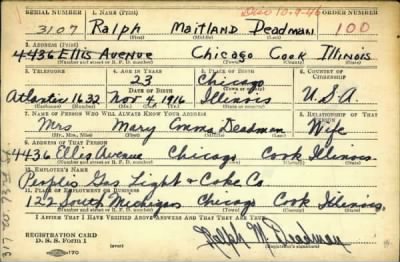 Disc 10-9-46
SERIAL NUMBER 1. NAME (Print) ORDER NUMBER
3107 Ralph Maitland Deadman 100
(First) (Middle) (Last)
2. ADDRESS (Print)
4436 Ellis Avenue Chicago Cook Illinois
(Number and street or R. F. D. number) (Town) (County) (State)
3. TELEPHONE 4. AGE IN YEARS 5. PLACE OF BIRTH 6. COUNTRY OF CITIZENSHIP
23 Chicago
DATE OF BIRTH (Town or county)
Atlantic 1632 Nov 4 1916 Illinois U.S.A.
(Exchange) (No.) (Mo.) (Day) (Yr.) (State or country)
7. NAME OF PERSON WHO WILL ALWAYS KNOW YOUR ADDRESS 8. RELATIONSHIP OF THAT PERSON
Mrs Mary Emma Deadman Wife
(Mr., Mrs., Miss) (First) (Middle) (Last)
9. ADDRESS OF THAT PERSON
4436 Ellis Avenue Chicago Cook Illinois.
(Number and street or R. F. D. number) (Town) (County) (State)
10. EMPLOYER'S NAME
Peoples Gas Light & Coke Co.
11. PLACE OF EMPLOYMENT OR BUSINESS
122 South Michigan Chicago Cook Illinois.
(Number and street or R. F. D. number) (Town) (County) (State)
I AFFIRM THAT I HAVE VERIFIED ABOVE ANSWERS AND THAT THEY ARE TRUE.
REGISTRATION CARD
D. S. S. Form 1
Ralph M. Deadman
(Registrant's signature)